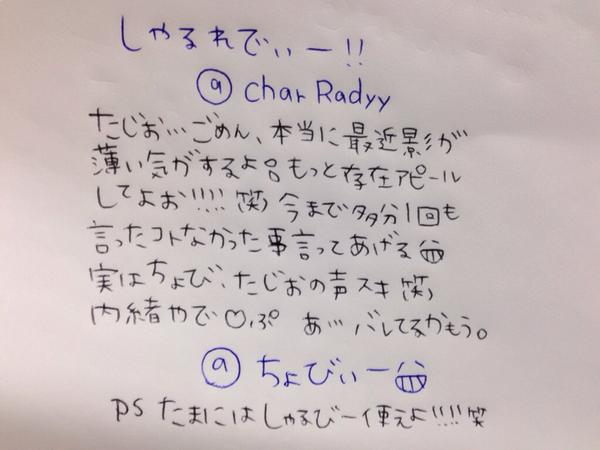 しゃるれでぃー!!
@ char Radyy
たじお…ごめん、本当に最近影が
薄い気がするよ。もっと存在アピール
してよお!!!!(笑) 今まで多分1回も
言ったコトなかった事言ってあげる
実はちょび、たじおの声スキ(笑)
内緒やで♡ぷ あ…バレてるかもう。
@ ちょびぃー
PS たまにはしゃるびー使えよ!!!!笑